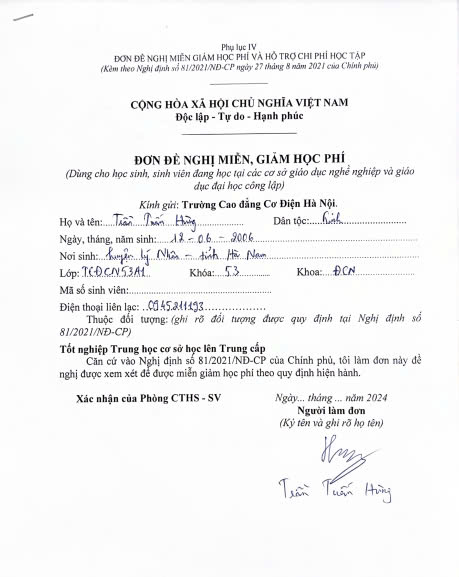 Phụ lục IV
ĐƠN ĐỀ NGHỊ MIỄN GIẢM HỌC PHÍ VÀ HỖ TRỢ CHI PHÍ HỌC TẬP
(Kèm theo Nghị định số 81/2021/NĐ-CP ngày 27 tháng 8 năm 2021 của Chính phủ)
CỘNG HÒA XÃ HỘI CHỦ NGHĨA VIỆT NAM
Độc lập - Tự do - Hạnh phúc
ĐƠN ĐỀ NGHỊ MIỄN, GIẢM HỌC PHÍ
(Dùng cho học sinh, sinh viên đang học tại các cơ sở giáo dục nghề nghiệp và giáo
dục đại học công lập)
Kính gửi: Trường Cao đẳng Cơ Điện Hà Nội.
Họ và tên:....Trần Tuấn Hùng.................... Dân tộc:....Kinh....................
Ngày, tháng, năm sinh:....12 - 06 - 2006....................
Nơi sinh: huyện Lý Nhân – tỉnh Hà Nam....................
Lớp: TCĐCN53A1 Khóa:...53............ Khoa:...ĐCN............
Mã số sinh viên:....................
Điện thoại liên lạc: ..0945211193....................
Thuộc đối tượng: (ghi rõ đối tượng được quy định tại Nghị định số
81/2021/NĐ-CP)
Tốt nghiệp Trung học cơ sở học lên Trung cấp
Căn cứ vào Nghị định số 81/2021/NĐ-CP của Chính phủ, tôi làm đơn này đề
nghị được xem xét để được miễn giảm học phí theo quy định hiện hành.
Xác nhận của Phòng CTHS - SV Ngày... tháng ... năm 2024
Người làm đơn
(Ký tên và ghi rõ họ tên)
Trần Tuấn Hùng